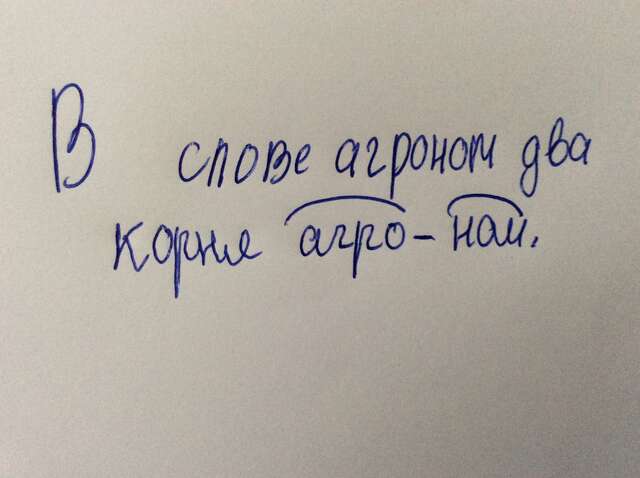 В слове агроном два
корня агро - ном.